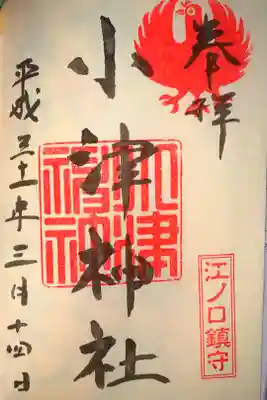 奉拝
小津神社
小津神社
江ノ口鎮守
平成三十一年三月十四日